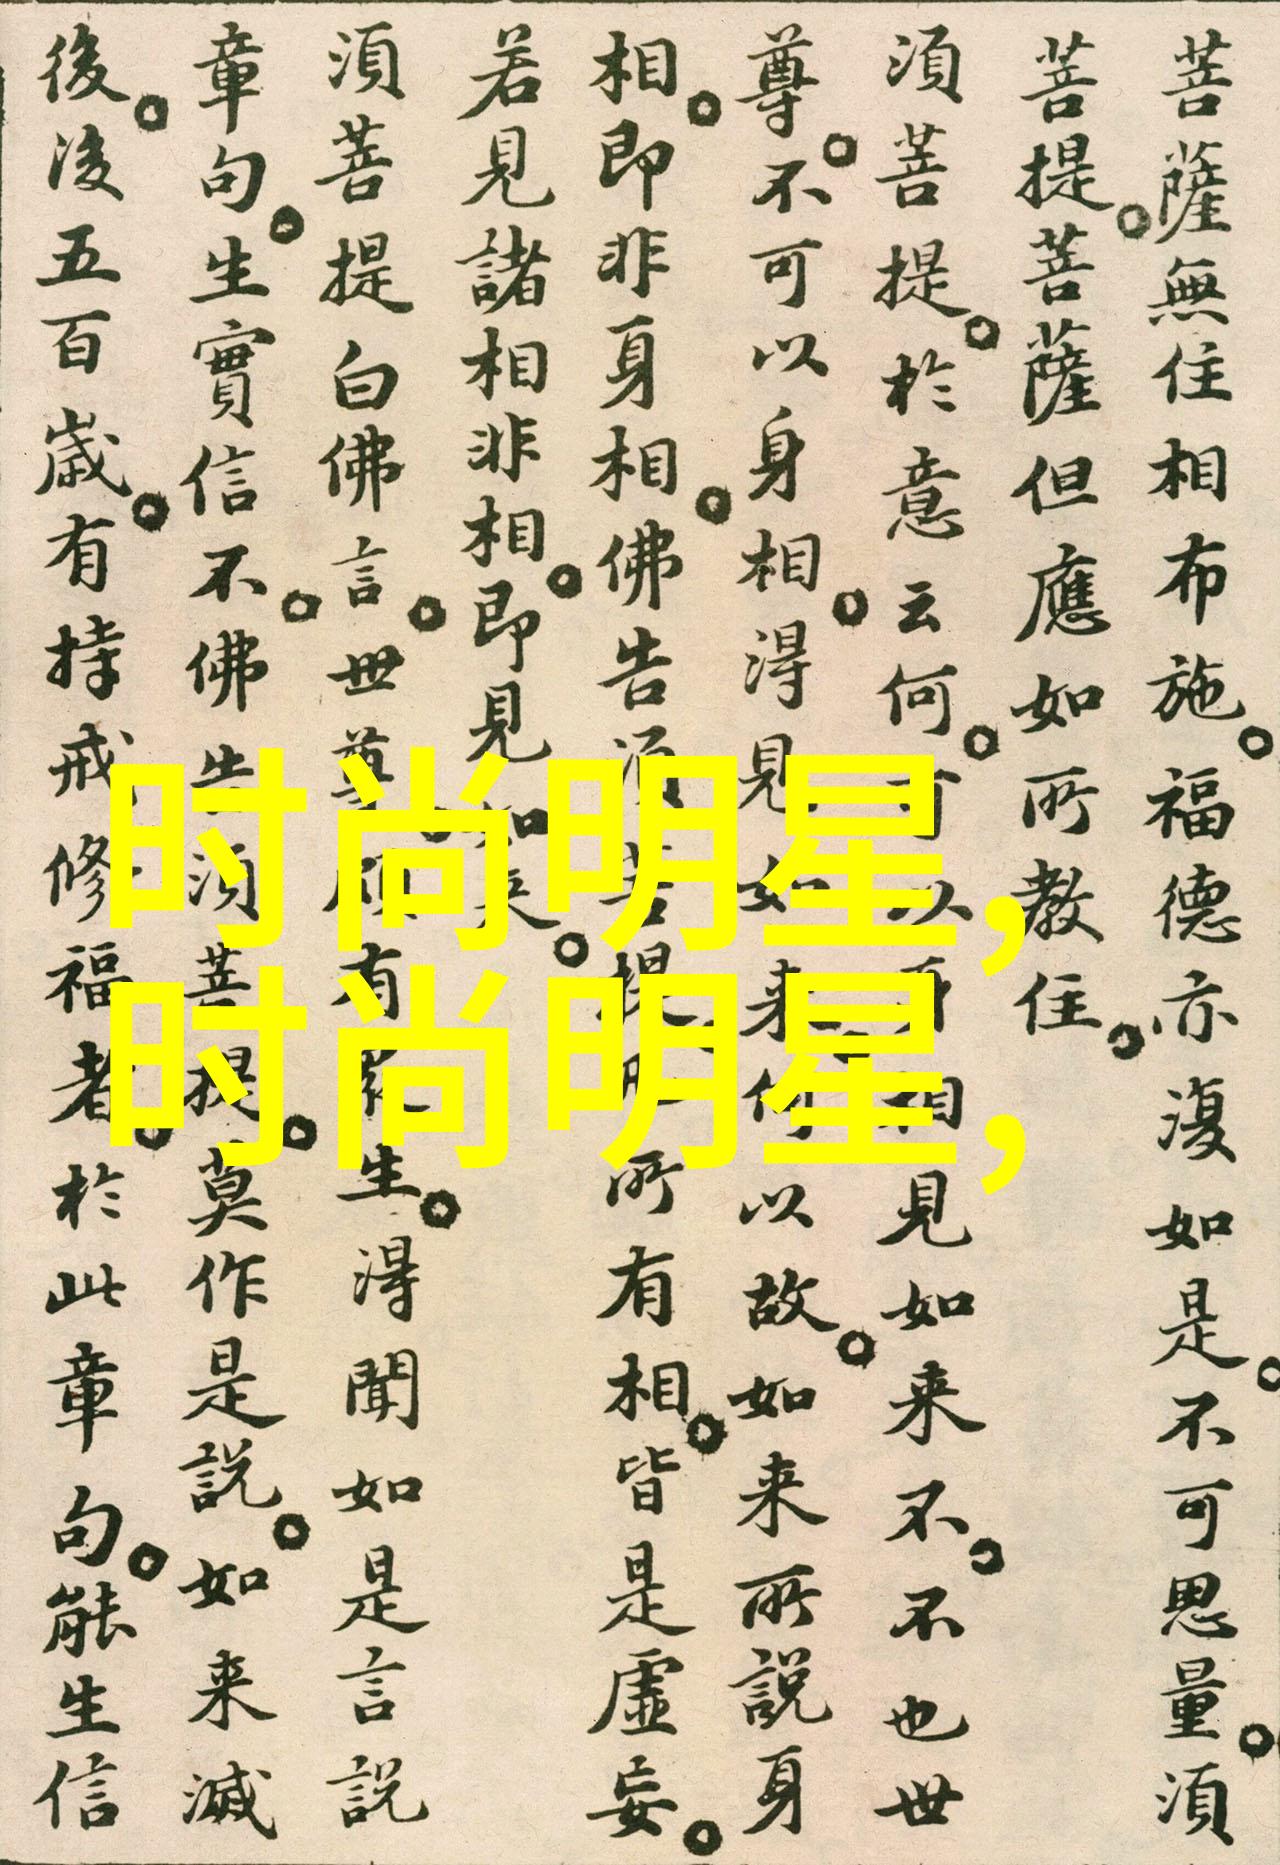 菩薩無住相布施。福德亦復如是。不可思量。須
菩提。菩薩但應如所教住。
須菩提。於意云何。可以身相見如来不。不也世
尊。不可以身相。得見如来。何以故。如来所說身
相。即非身相。佛告須菩提。凡所有相。皆是虛妄。
若見諸相非相。即見如来。
須菩提白佛言。世尊。頗有眾生。得聞如是言說
章句。生實信不。佛告須菩提。莫作是說。如来滅
後。後五百歲。有持戒修福者。於此章句。能生信
时尚明星,
时尚明星,